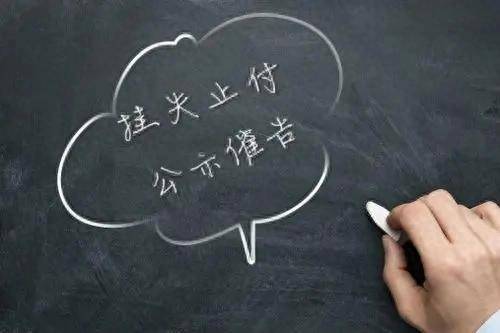 挂失止付
公示催告